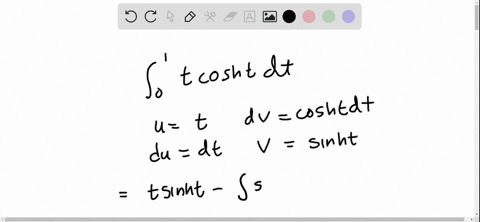 ∫₀¹ t cosh t dt
u = t dv = cosh t dt
du = dt v = sinh t
= t sinh t − ∫ s